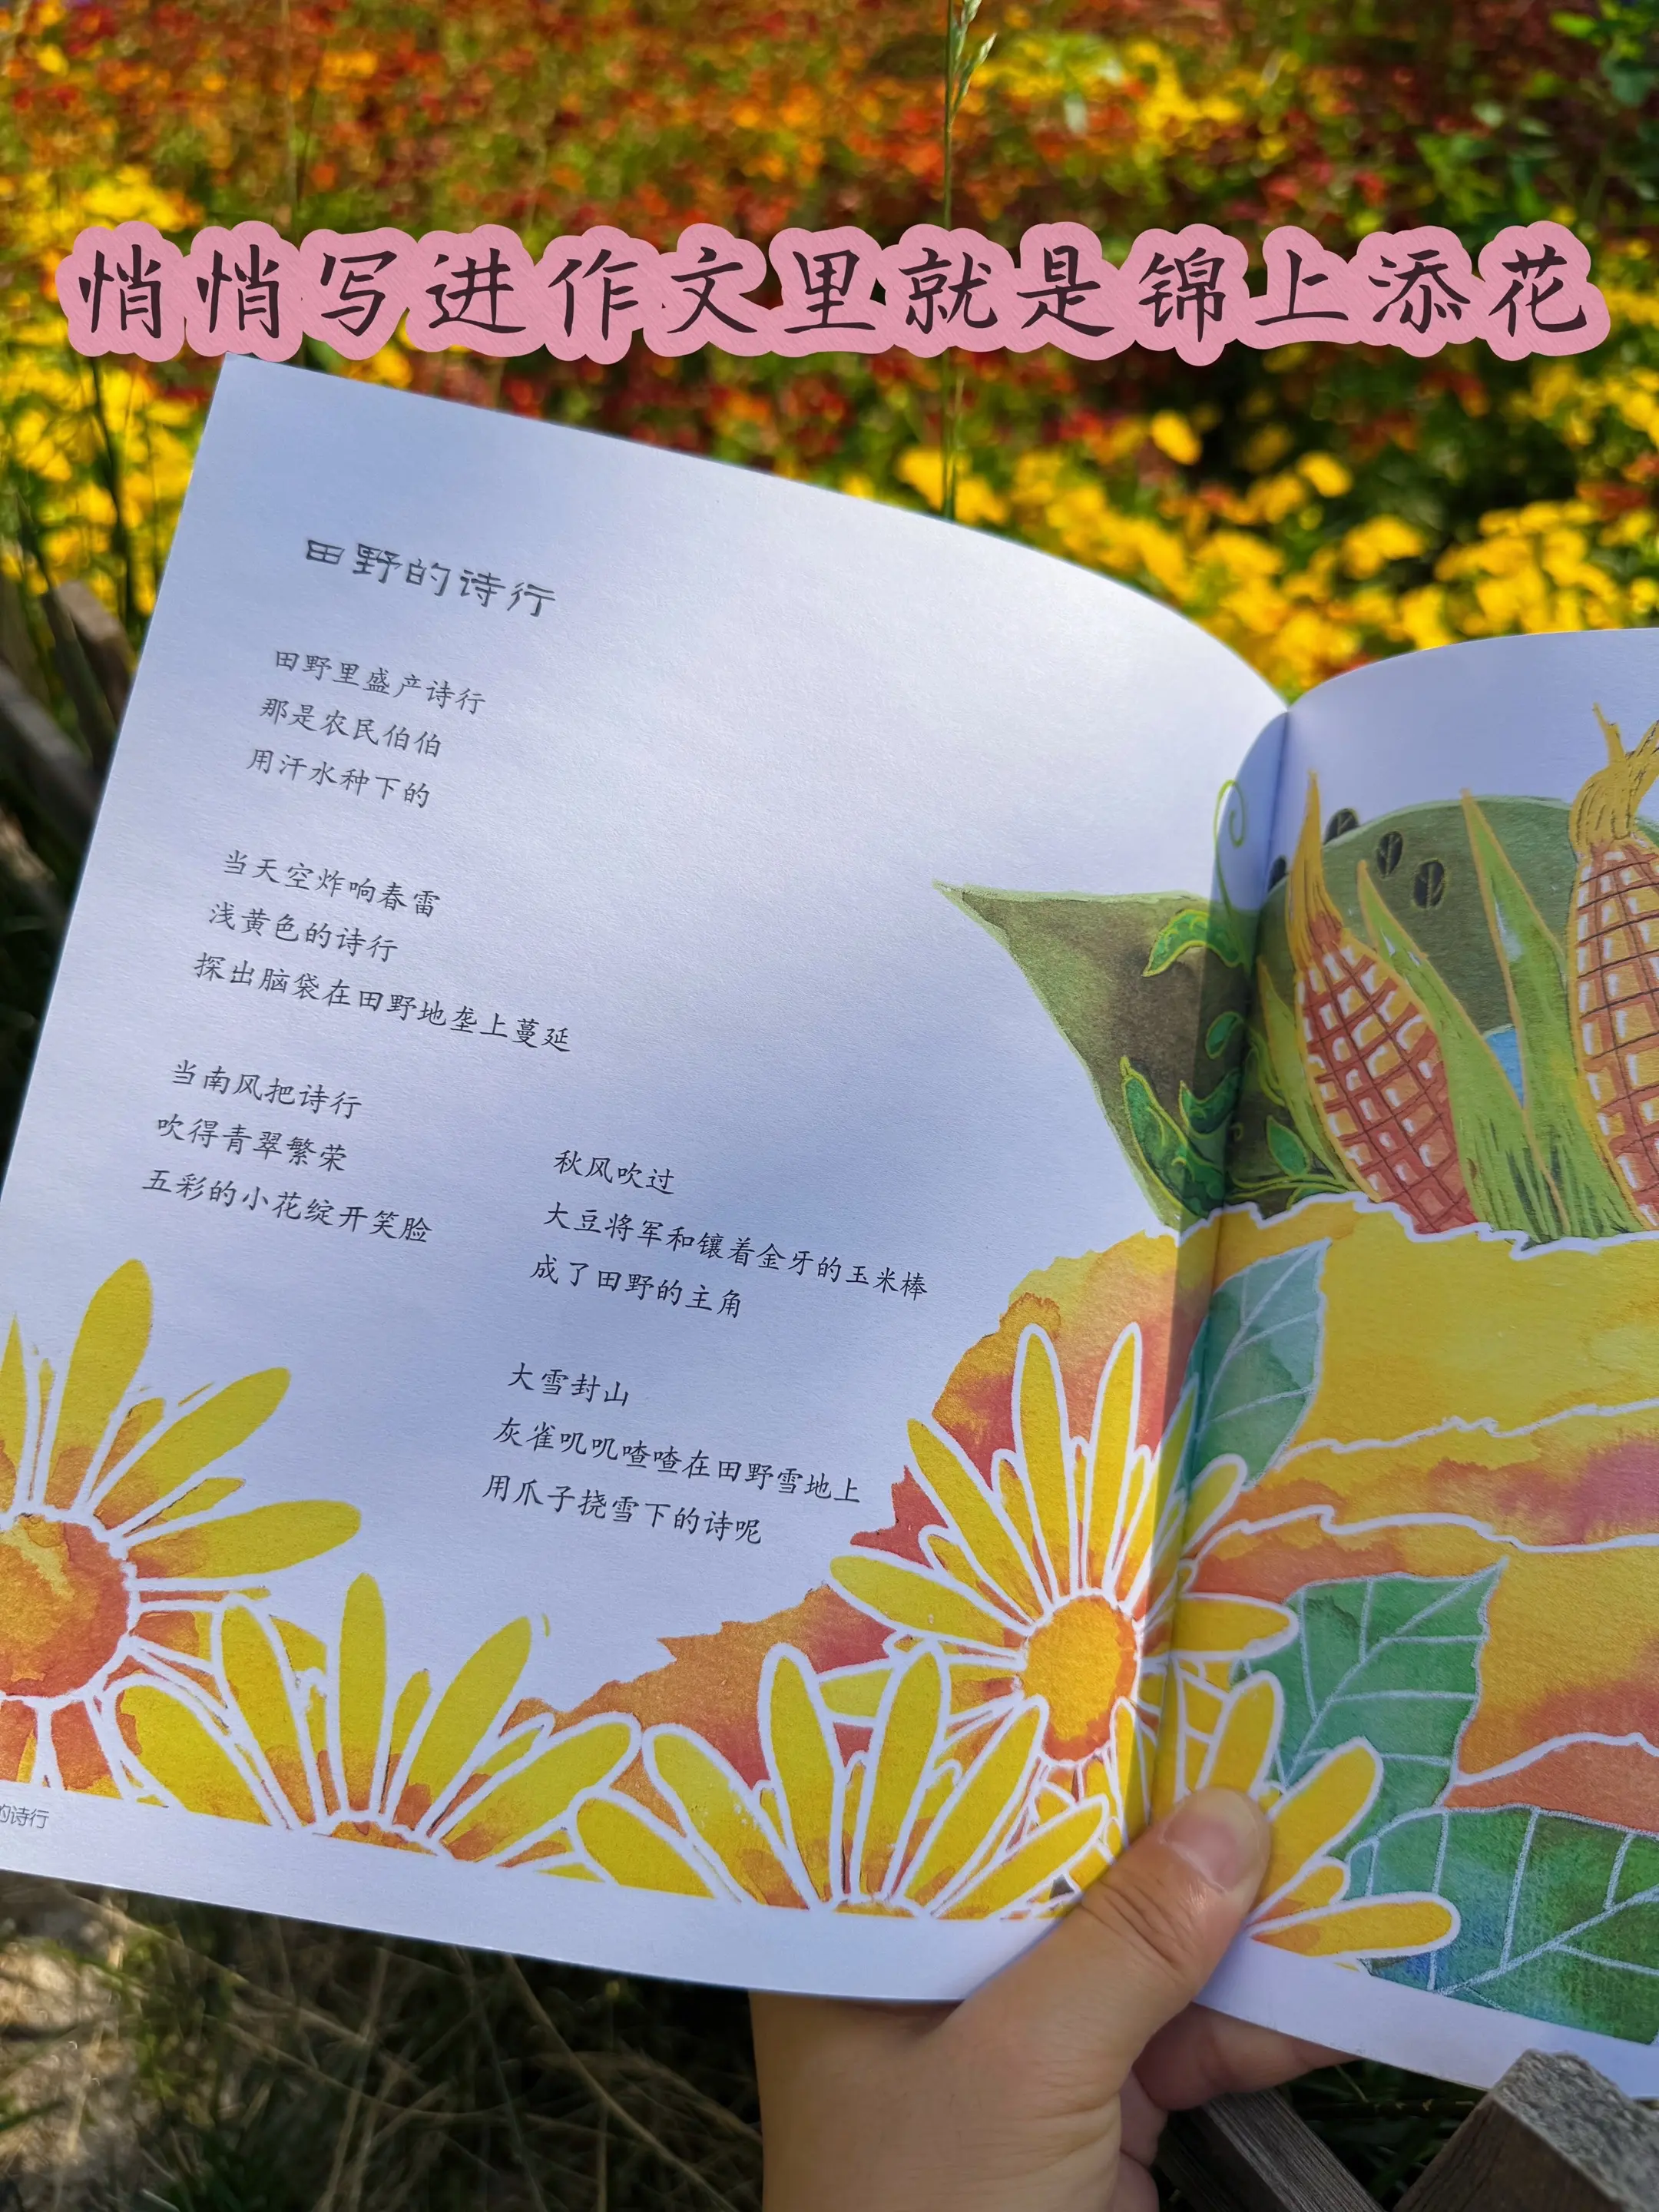 悄悄写进作文里就是锦上添花
田野的诗行
田野里盛产诗行
那是农民伯伯
用汗水种下的
当天空炸响春雷
浅黄色的诗行
探出脑袋在田野地垄上蔓延
当南风把诗行
吹得青翠繁荣
五彩的小花绽开笑脸
秋风吹过
大豆将军和镶着金牙的玉米棒
成了田野的主角
大雪封山
灰雀叽叽喳喳在田野雪地上
用爪子挠雪下的诗呢
的诗行